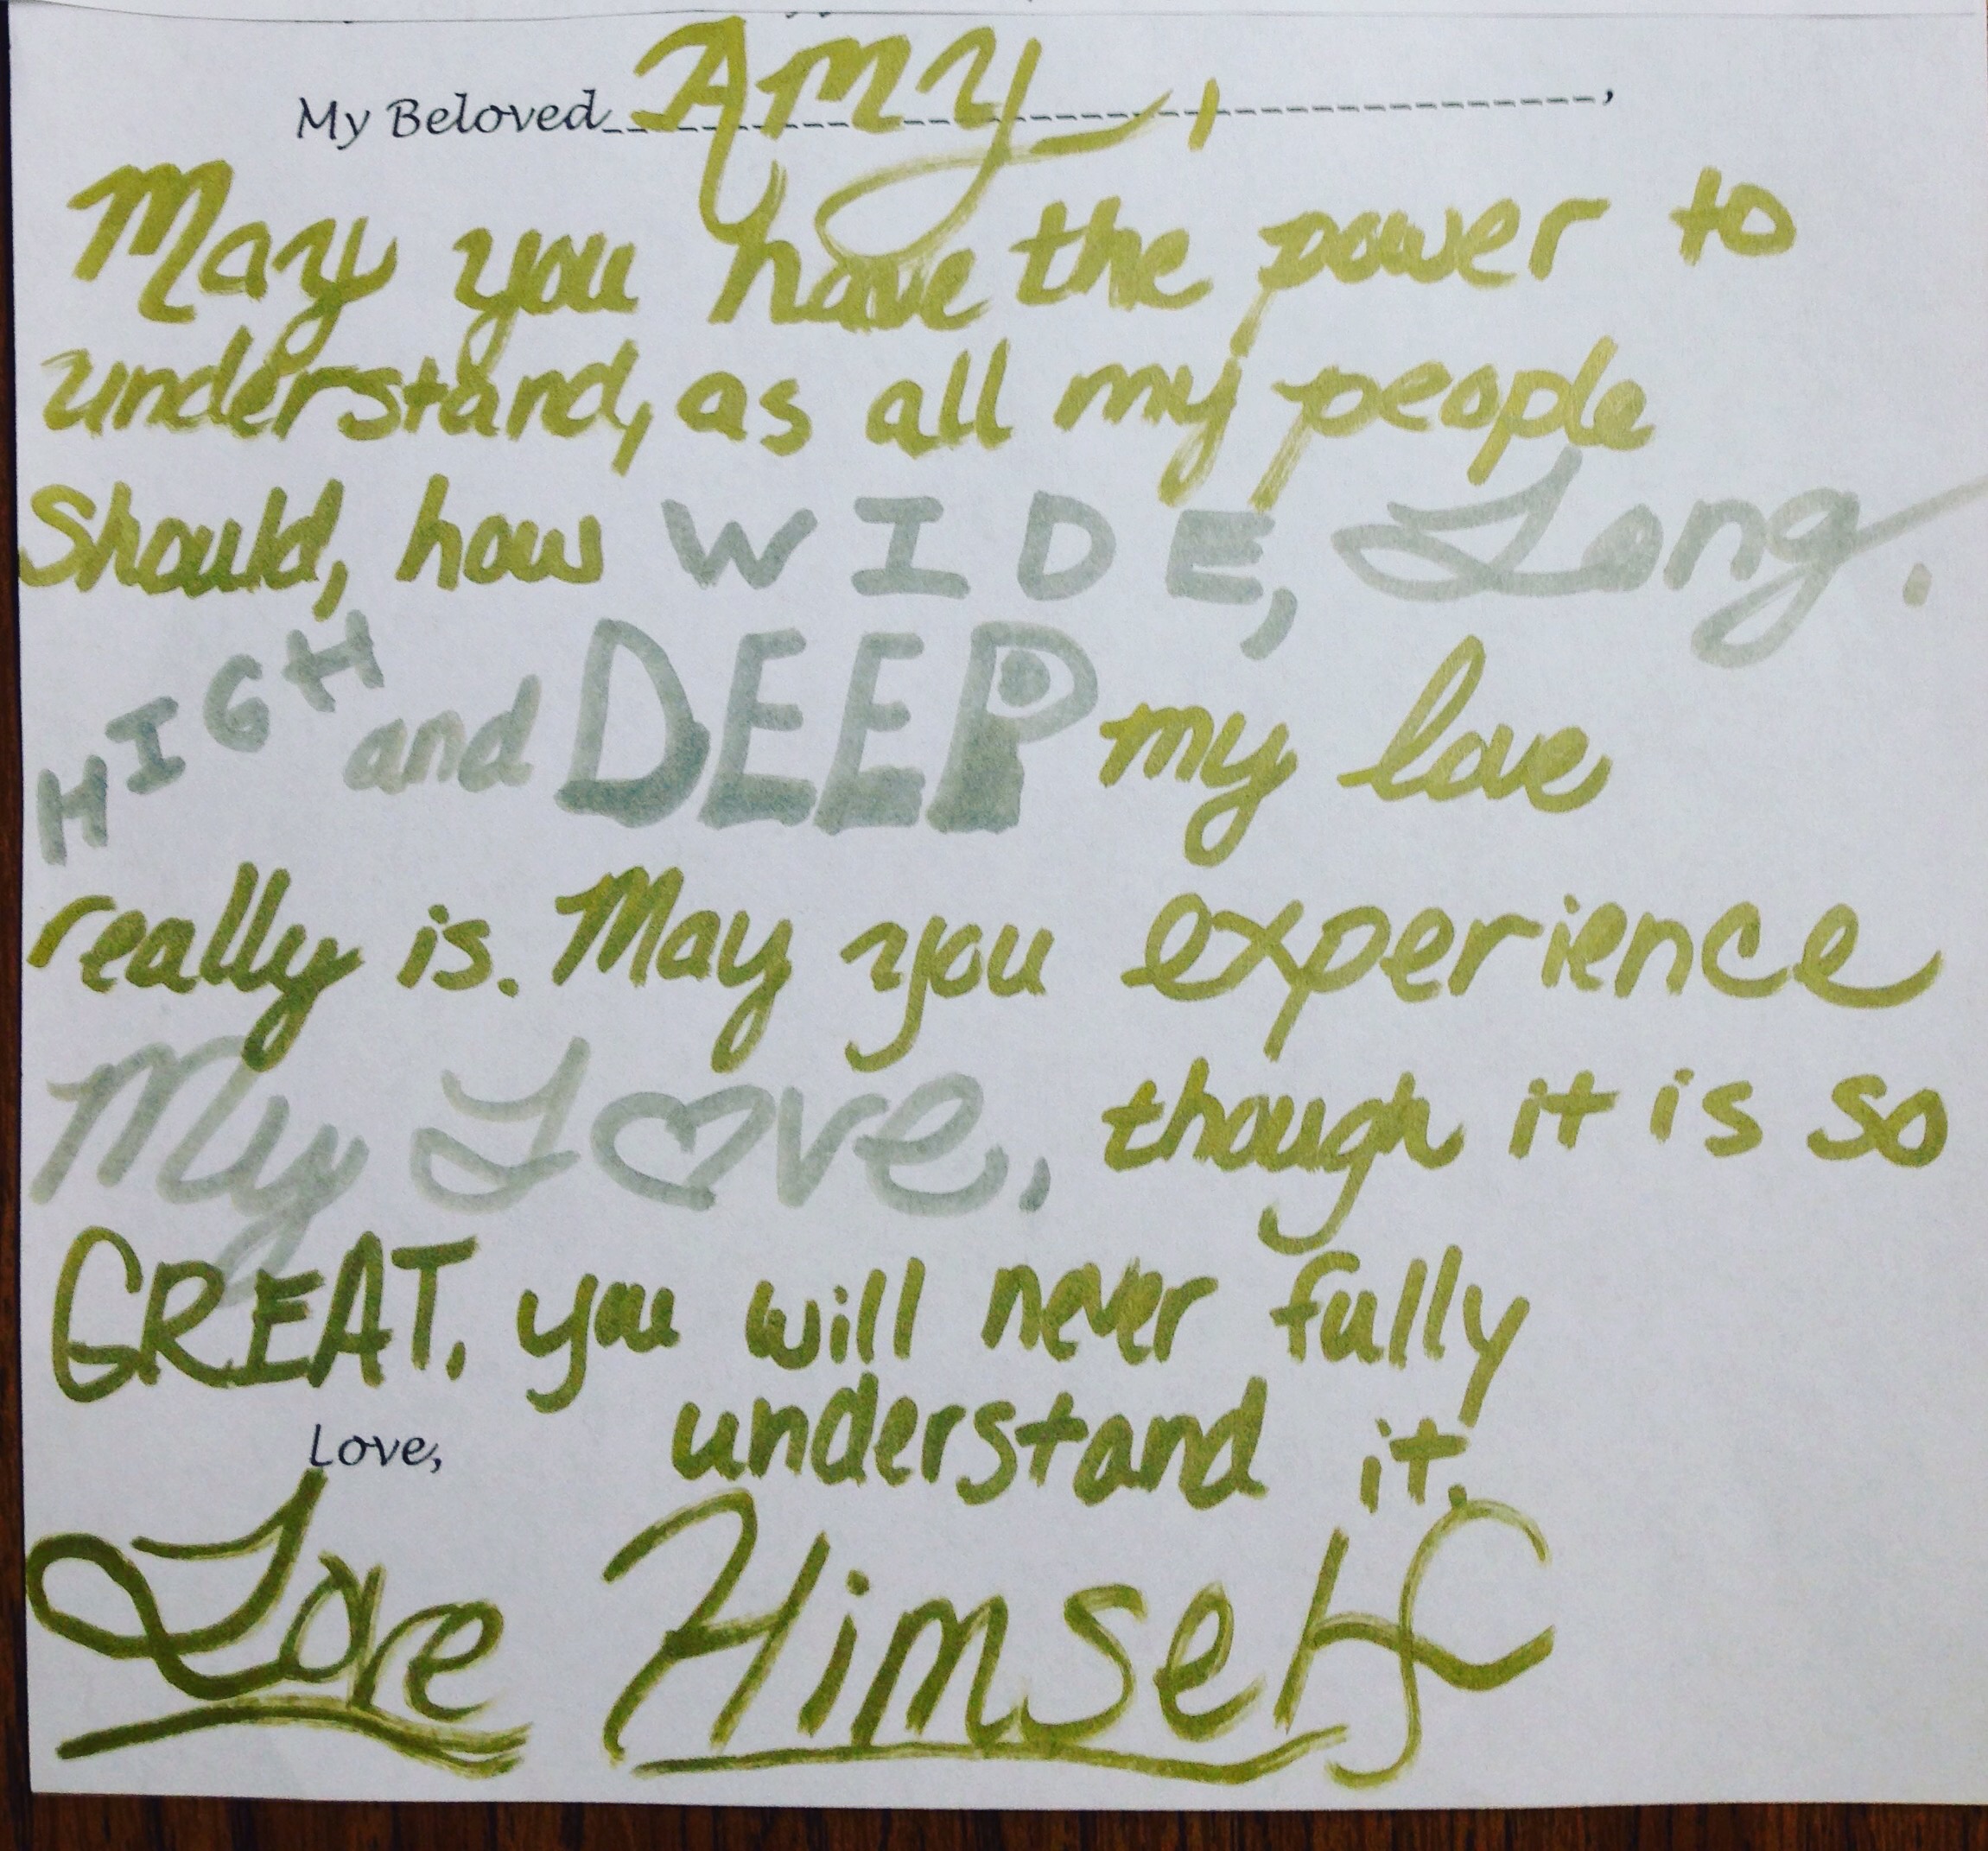 My Beloved Amy, ,
May you have the power to
understand, as all my people
Should, how WIDE, Long,
HIGH and DEEP my love
really is. May you experience
My L♡ve, though it is so
GREAT, you will never fully
understand it.
Love,
Love Himself